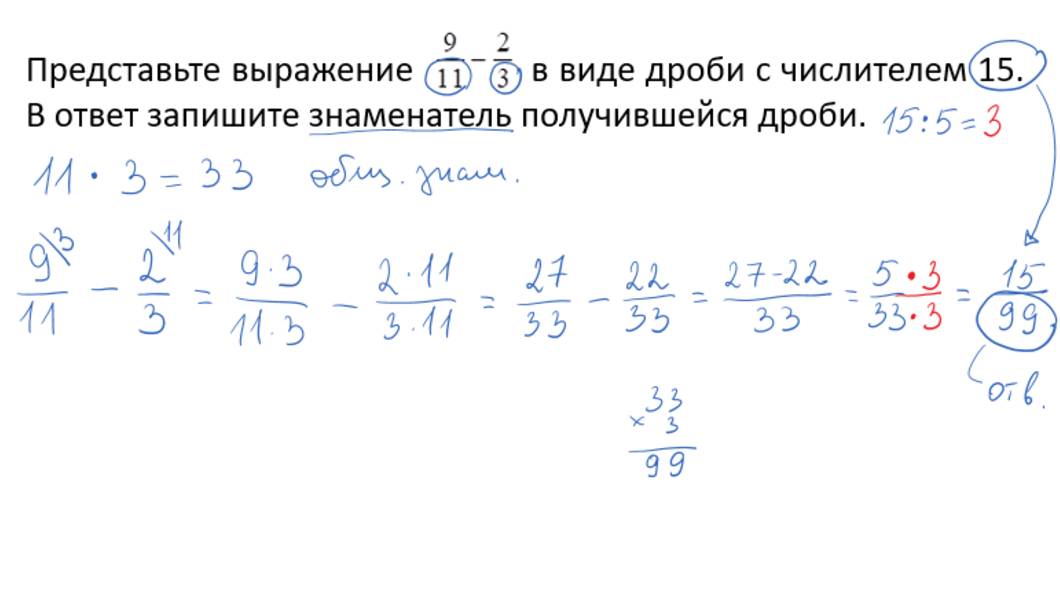 Представьте выражение 9/11 − 2/3 в виде дроби с числителем 15.
В ответ запишите знаменатель получившейся дроби. 15:5=3
11 · 3 = 33 общ. знам.
9\3/11 − 2\11/3 = 9·3/11·3 − 2·11/3·11 = 27/33 − 22/33 = 27-22/33 = 5·3/33·3 = 15/99
отв.
33
× 3
99